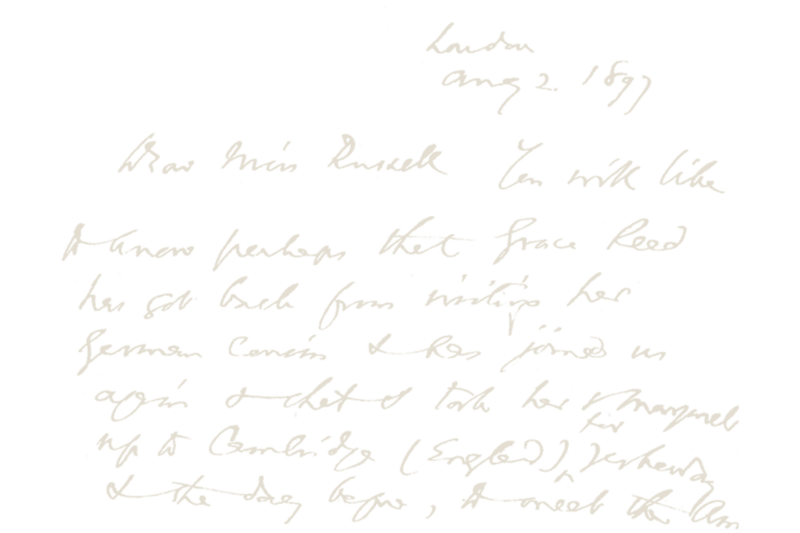 London
Aug 2. 1897
Dear Miss Russell You will like
to know perhaps that Grace Reed
has got back from visiting her
German Cousins & has joined us
again & that I took her & Margaret
up to Cambridge (England), for yesterday
& the day before, to meet the Am